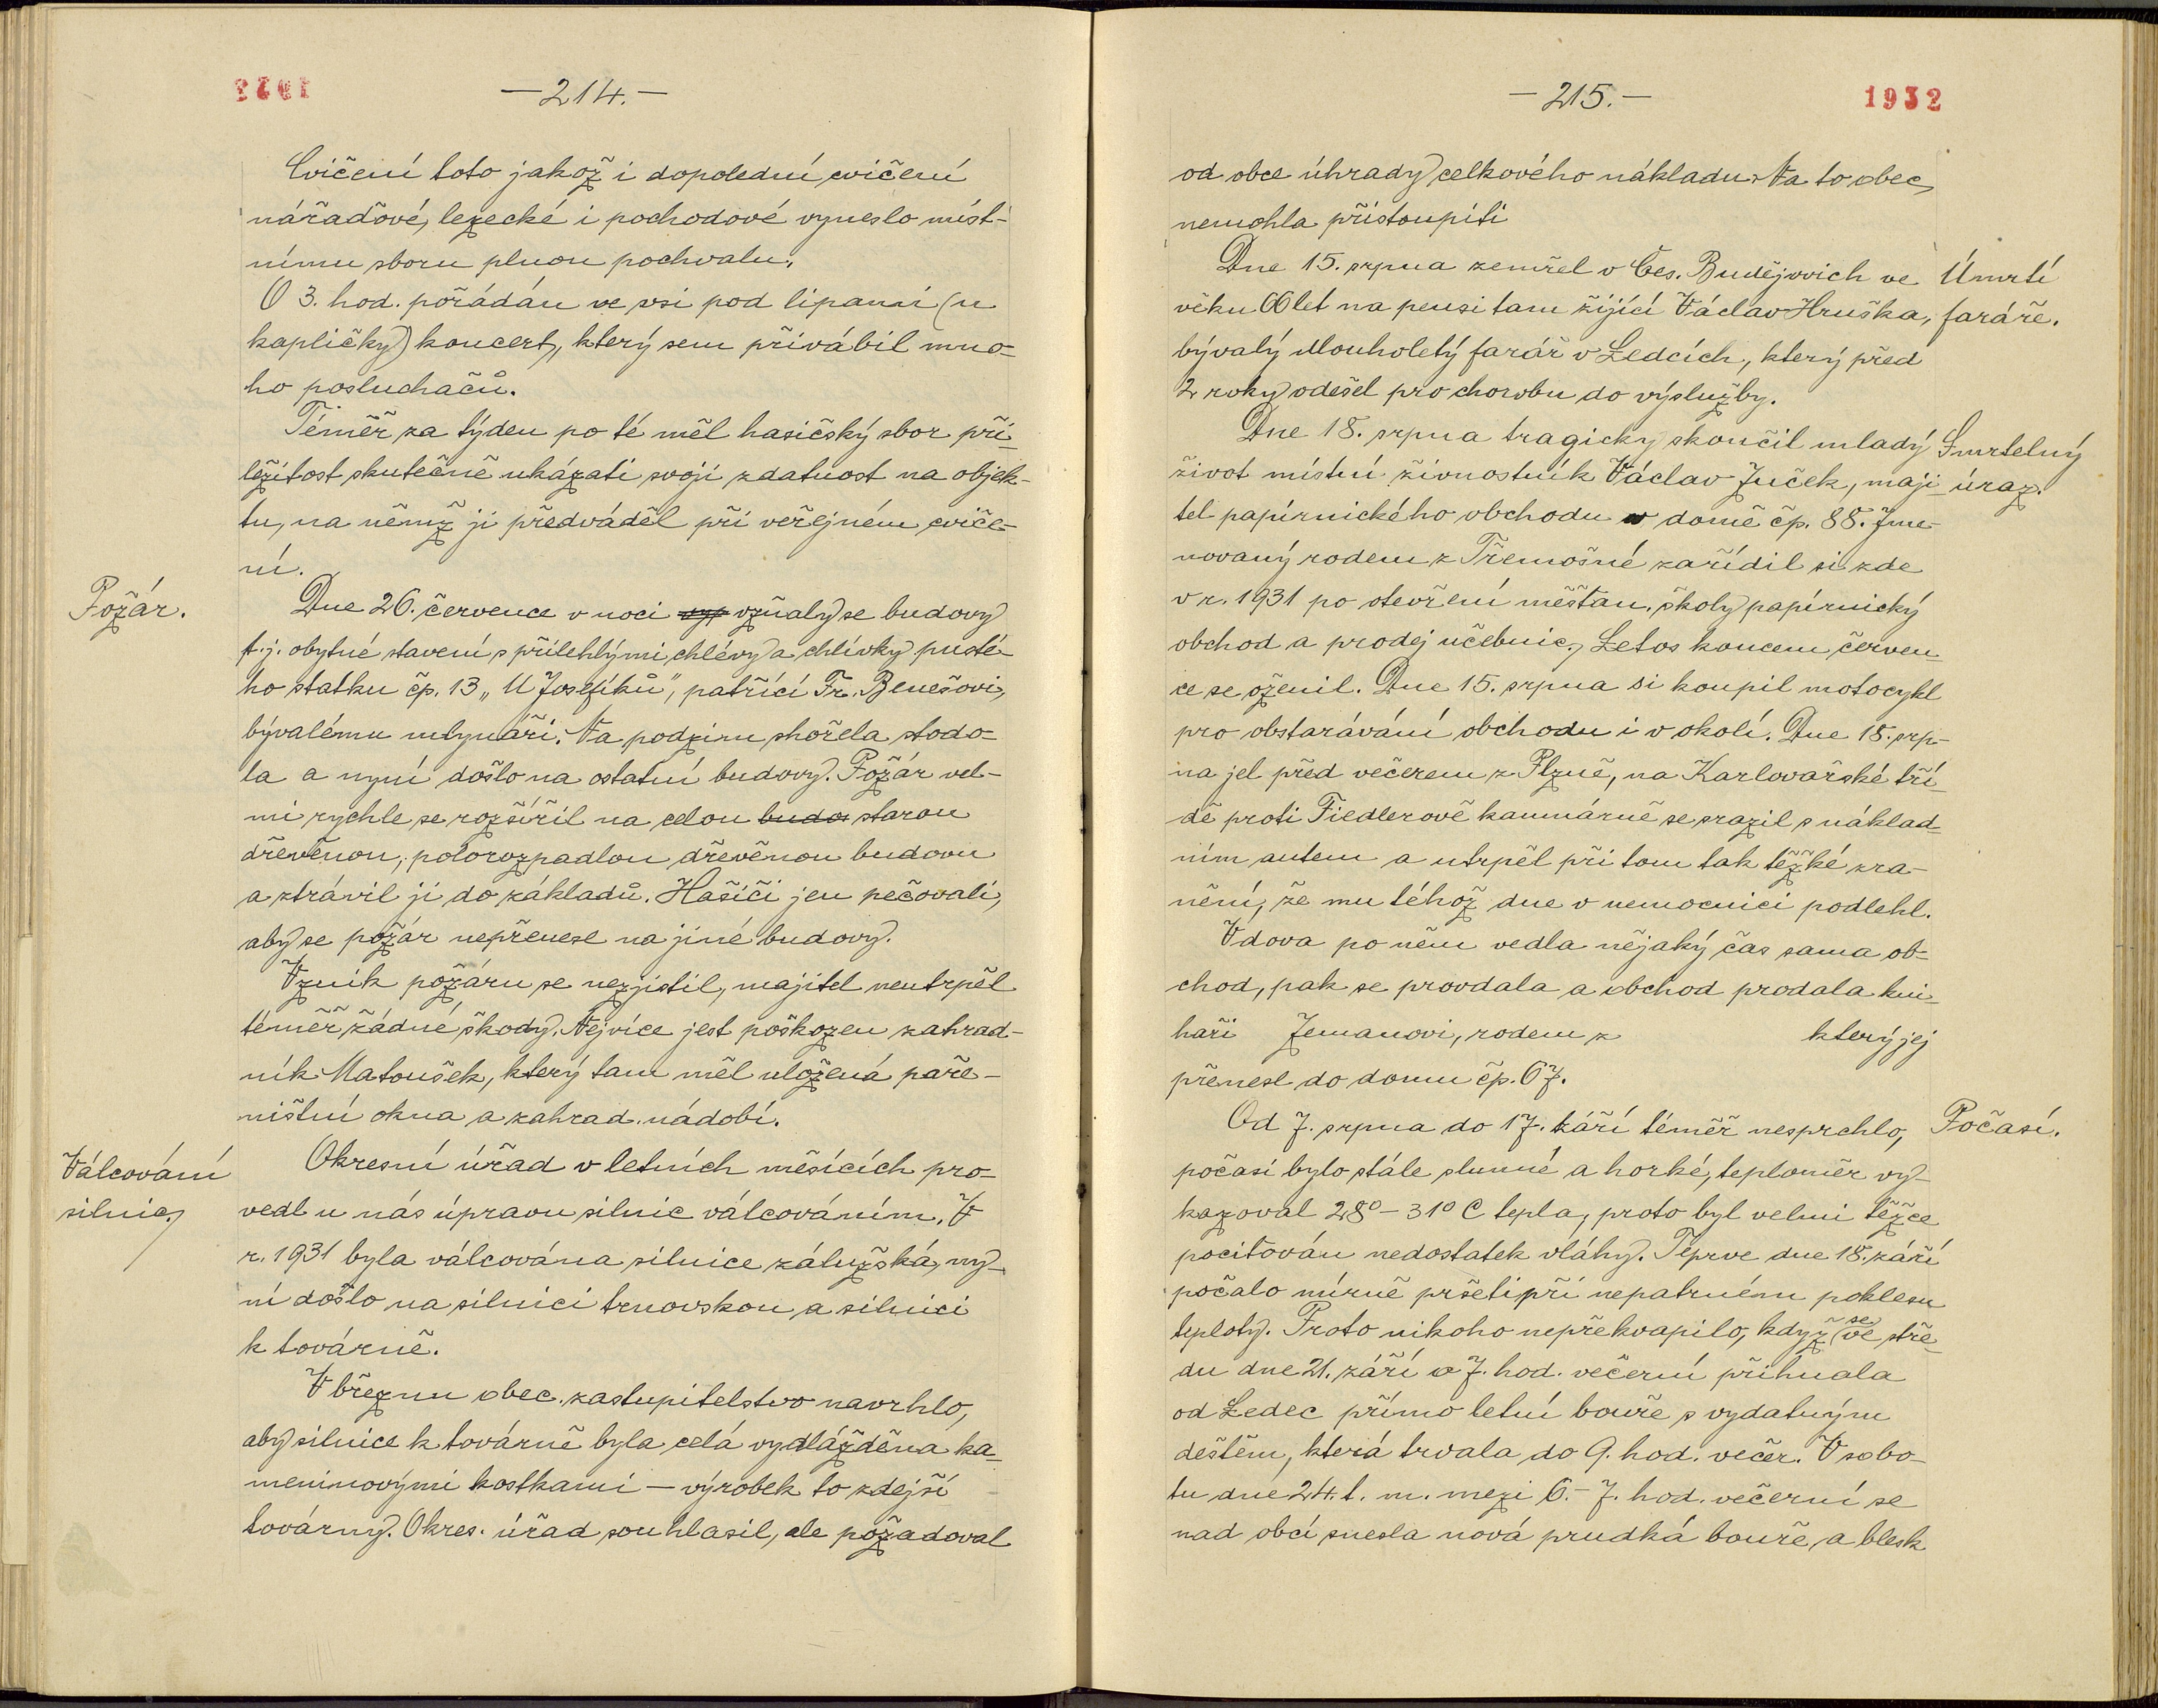 —214.—
Cvičení toto jakož i dopolední cvičení
nářaďové, lezecké i pochodové vyneslo míst-
nímu sboru plnou pochvalu.
O 3. hod. pořádán ve vsi pod lipami (u
kapličky) koncert, který sem přivábil mno-
ho posluchačů.
Téměř za týden po té měl hasičský sbor pří-
ležitost skutečně ukázati svoji zdatnost na objek-
tu, na němž ji předváděl při veřejném cviče-
ní.
Požár.
Dne 26. července v noci vyp vzňaly se budovy
t.j. obytné stavení s přilehlými chlévy a chlívky pusté-
ho statku čp. 13 „U Josefíků", patřící Fr. Benešovi,
bývalému mlynáři. Na podzim shořela stodo-
la a nyní došlo na ostatní budovy. Požár vel-
mi rychle se rozšířil na celou budov starou
dřevěnou, polorozpadlou dřevěnou budovu
a strávil ji do základů. Hasiči jen pečovali,
aby se požár nepřenesl na jiné budovy.
Vznik požáru se nezjistil, majitel neutrpěl
téměř žádné škody. Nejvíce jest poškozen zahrad-
ník Matoušek, který tam měl uložená paře-
ništní okna a zahrad. nádobí.
Válcování
silnic.
Okresní úřad v letních měsících pro-
vedl u nás úpravu silnic válcováním. V
r. 1931 byla válcována silnice zálužská, ny-
ní došlo na silnici trnovskou a silnici
k továrně.
V březnu obec. zastupitelstvo navrhlo,
aby silnice k továrně byla celá vydlážděna ka-
meninovými kostkami — výrobek to zdejší
továrny. Okres. úřad souhlasil, ale požadoval
—215.—
1932
od obce úhrady celkového nákladu. Na to obec
nemohla přistoupiti
Dne 15. srpna zemřel v Čes. Budějovich ve
věku 66 let na pensi tam žijící Václav Hruška,
bývalý dlouholetý farář v Ledcích, který před
2 roky odešel pro chorobu do výslužby.
Úmrtí
faráře.
Dne 18. srpna tragicky skončil mladý
život místní živnostník Václav Juček, maji-
tel papírnického obchodu v domě čp. 88. Jme-
novaný rodem z Třemošné zařídil si zde
v r. 1931 po otevření měšťan. školy papírnický
obchod a prodej učebnic. Letos koncem červen-
ce se oženil. Dne 15. srpna si koupil motocykl
pro obstarávání obchodu i v okolí. Dne 18. srp-
na jel před večerem z Plzně, na Karlovarské tří-
dě proti Fiedlerově kamnárně se srazil s náklad-
ním autem a utrpěl při tom tak těžké zra-
nění, že mu téhož dne v nemocnici podlehl.
Smrtelný
úraz.
Vdova po něm vedla nějaký čas sama ob-
chod, pak se provdala a obchod prodala kni-
haři Zemanovi, rodem z který jej
přenesl do domu čp. 67.
Od 7. srpna do 17. září téměř nesprchlo,
počasí bylo stále slunné a horké, teploměr vy-
kazoval 28° – 31° C tepla, proto byl velmi těžce
pociťován nedostatek vláhy. Teprve dne 18. září
počalo mírně pršeti při nepatrném poklesu
teploty. Proto nikoho nepřekvapilo, když se ve stře-
du dne 21. září o 7. hod. večerní přihnala
od Ledec přímo letní bouře s vydatným
deštěm, která trvala do 9. hod. večer. V sobo-
tu dne 24. t. m. mezi 6.– 7. hod. večerní se
nad obcí snesla nová prudká bouře, a blesk
Počasí.